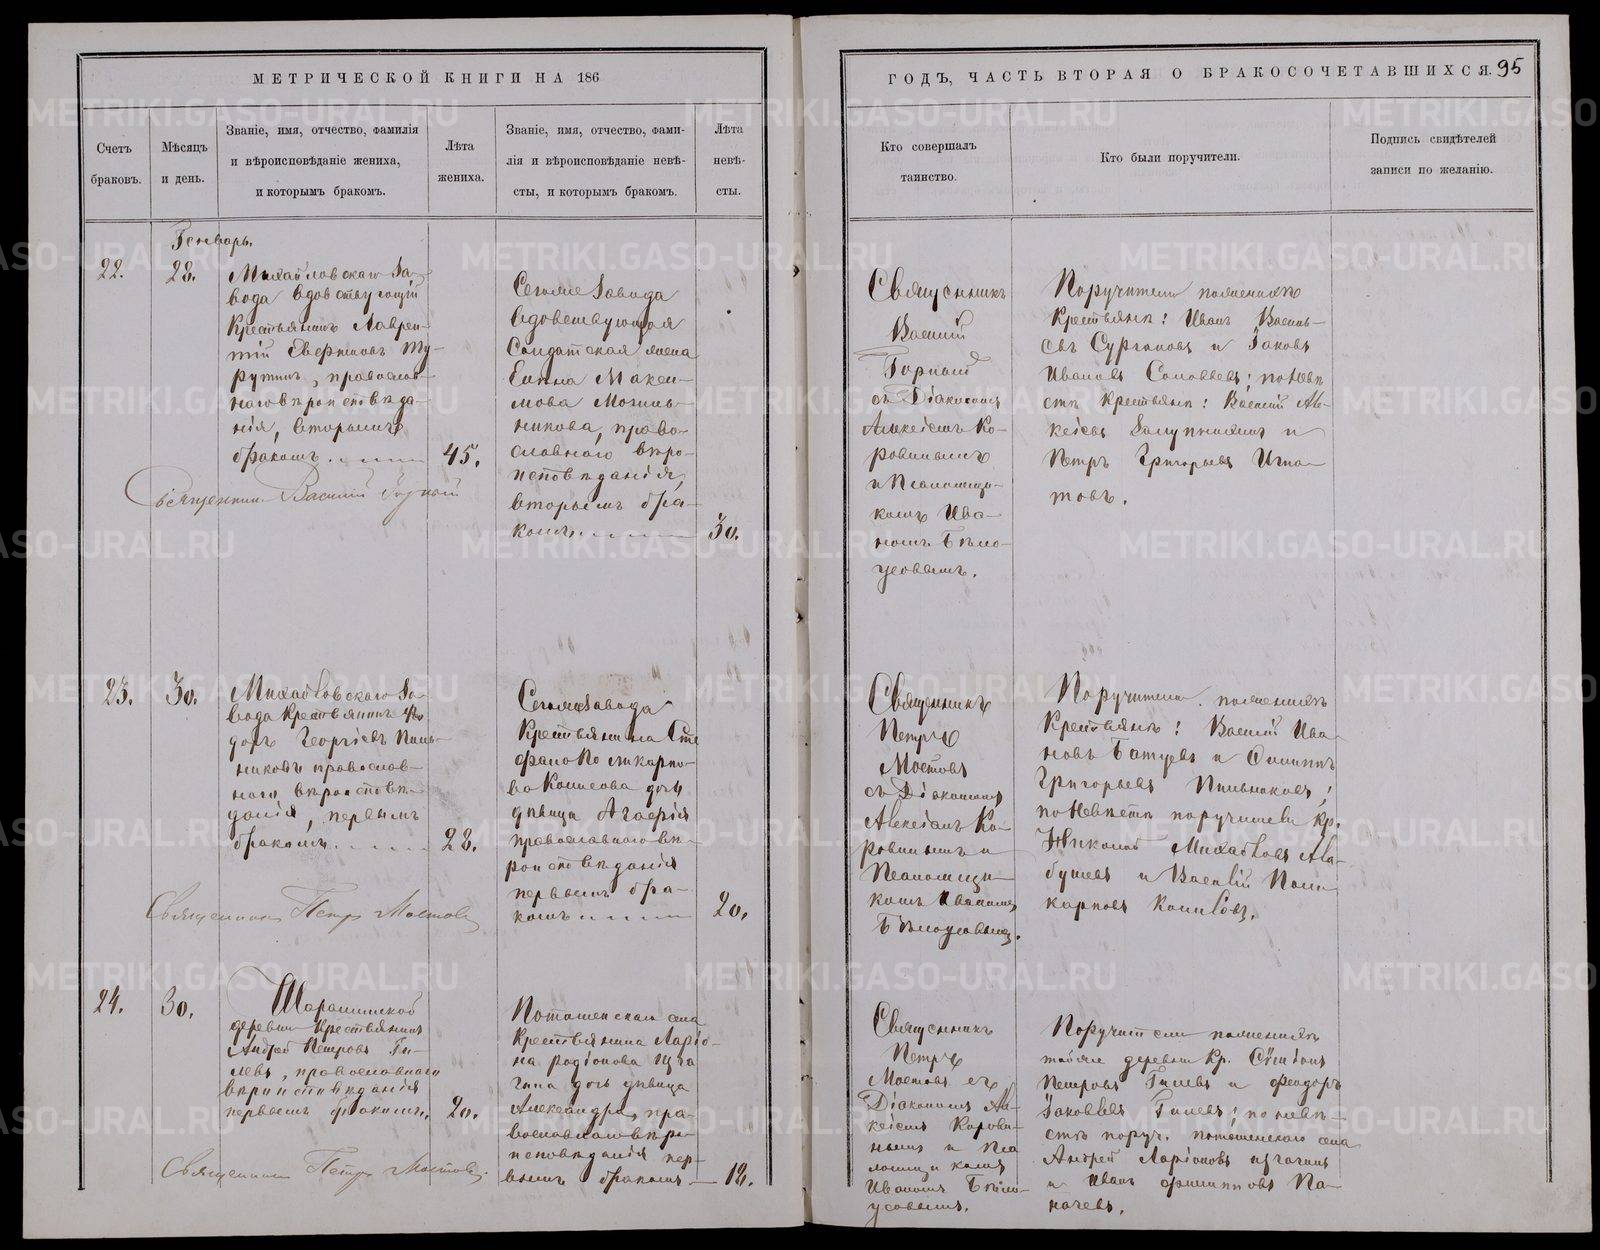 МЕТРИЧЕСКОЙ КНИГИ НА 186
Счетъ браковъ.
Мѣсяцъ и день.
Званіе, имя, отчество, фамилія
и вѣроисповѣданіе жениха,
и которымъ бракомъ.
Лѣта жениха.
Званіе, имя, отчество, фами-
лія и вѣроисповѣданіе невѣ-
сты, и которымъ бракомъ.
Лѣта невѣ-
сты.
Генварь.
22.
28.
Михайловскаго За-
вода вдовствующій
Крестьянинъ Лаврен-
тій
рутинъ, православ-
наго вѣроисповѣда-
нія, вторымъ
бракомъ
45.
Священникъ Василій Горный
Сегоже Завода
вдовствующая
Солдатская жена
Елена Макси-
мова Мохиль-
никова, право-
славнаго вѣро-
исповѣданія,
вторымъ бра-
комъ
30.
23.
30.
Михайловскаго За-
вода Крестьянинъ Фео-
доръ Георгіевъ Пиль-
никовъ православ-
наго вѣроисповѣ-
данія, первымъ
бракомъ
28.
Священникъ Петръ Мостовъ
Сегоже Завода
Крестьянина Сте
фана Поликарпо-
ва Копысова дочь
дѣвица Агафія
православнаго вѣ-
роисповѣданія
первымъ бра-
комъ
20.
24.
30.
деревни Крестьянинъ
Андрей Петровъ Ги-
левъ, православнаго
вѣроисповѣданія
первымъ бракомъ.
20.
Священникъ Петръ Мостовъ.
Поташенскаго села
Крестьянина Ларіо-
на Родіонова Изга
гина дочь дѣвица
Александра, пра-
вославнаго вѣро-
исповѣданія пер-
вымъ бракомъ
18.
ГОДЪ, ЧАСТЬ ВТОРАЯ О БРАКОСОЧЕТАВШИХСЯ.
95
Кто совершалъ
таинство.
Кто были поручители.
Подпись свидѣтелей
записи по желанію.
Священникъ
Василій
Горный
съ Діакономъ
Алексіемъ Ко-
ровинымъ
и Псаломщи-
комъ Ива-
номъ Бѣло-
усовымъ.
Поручители по женихѣ
Крестьяне: Иванъ Василь-
евъ и Іаковъ
Ивановъ Соловьевъ; по невѣ
стѣ Крестьяне: Василій Але-
ксіевъ и
Петръ Григорьевъ Игна-
товъ.
Священникъ
Петръ
Мостовъ
съ Діакономъ
Алексіемъ Ко-
ровинымъ и
Псаломщи-
комъ Иваномъ
Бѣлоусовымъ.
Поручители по женихѣ
Крестьяне: Василій Ива-
новъ и Филиппъ
Григорьевъ Пильниковъ;
по невѣстѣ поручители Кр.
Николай Михайловъ
и Василій Поли
карповъ Копысовъ.
Священникъ
Петръ
Мостовъ съ
Діакономъ Але-
ксіемъ Корови-
нымъ и Пса
ломщикомъ
Иваномъ Бѣло-
усовымъ.
Поручители по женихѣ
тойже деревни Кр. Симіонъ
Петровъ Гилевъ и Феодоръ
Іаковлевъ Гилевъ; по невѣ-
стѣ поруч. поташенскаго села
Андрей Ларіоновъ Изгагинъ
и Иванъ Филипповъ Па-
начевъ.
METRIKI.GASO-URAL.RU